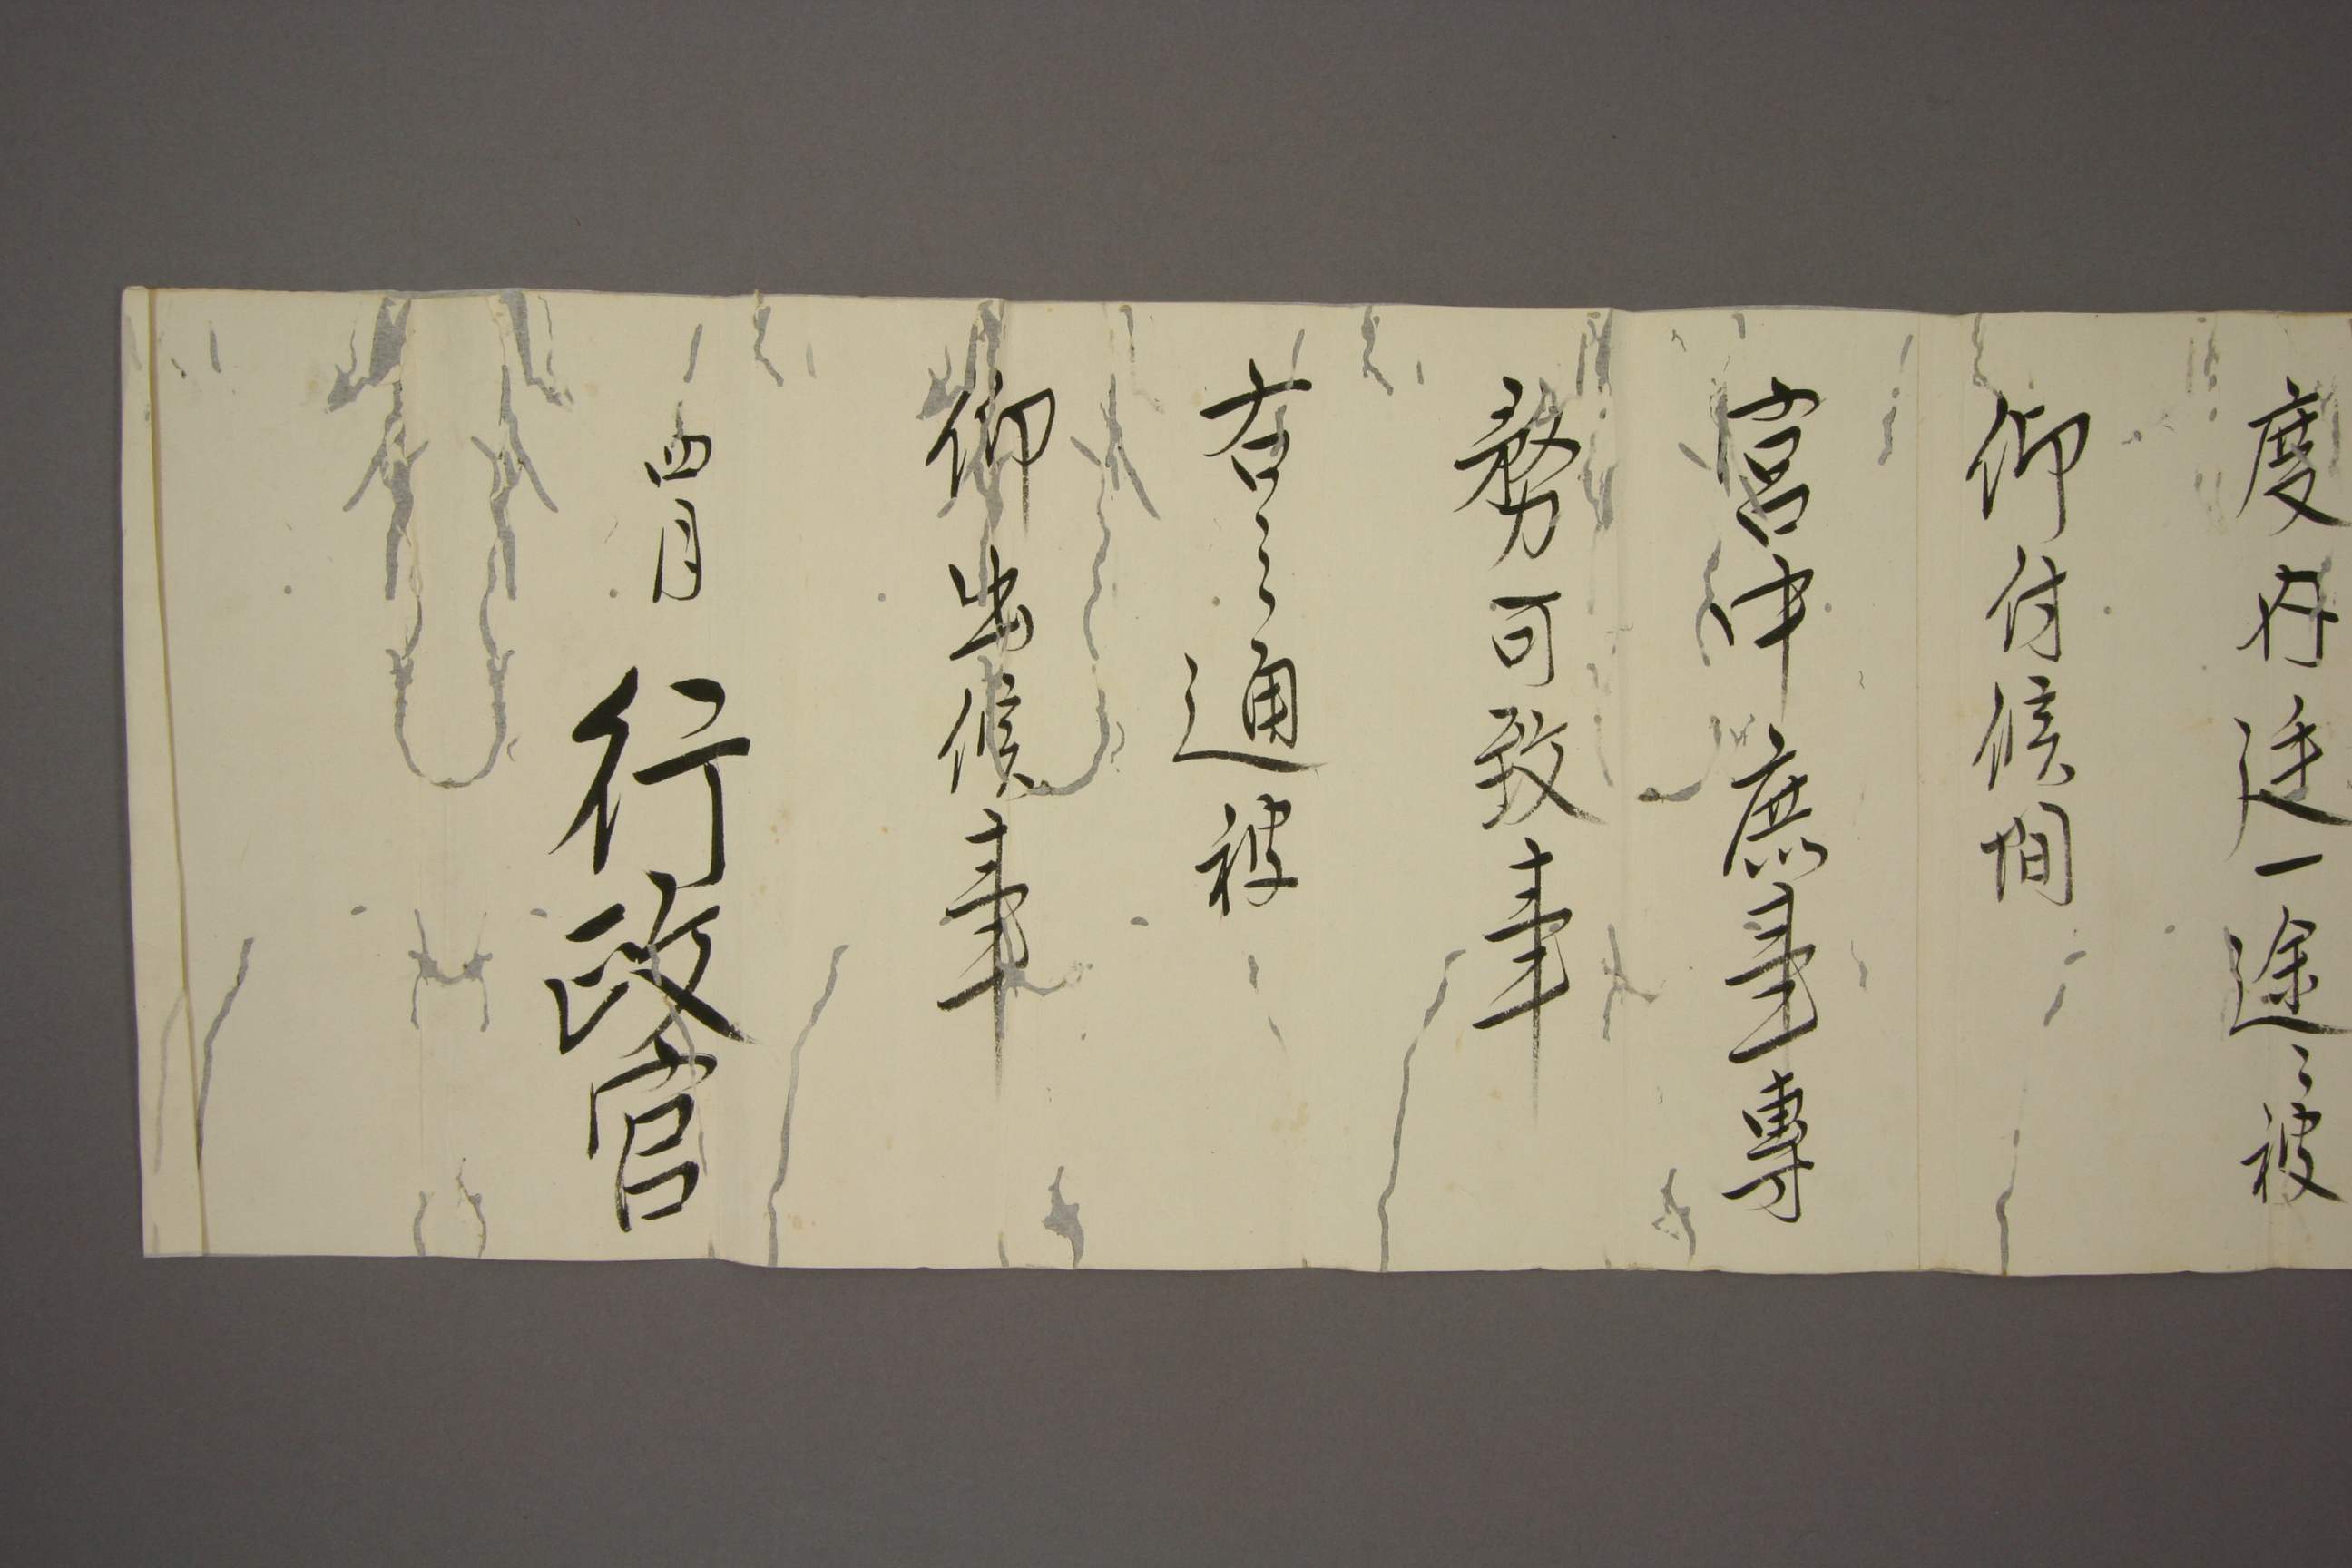 度内廷一途ニ被
仰付候間
宮中庶事専
務可致事
右之通被
仰出候事
四月
行政官